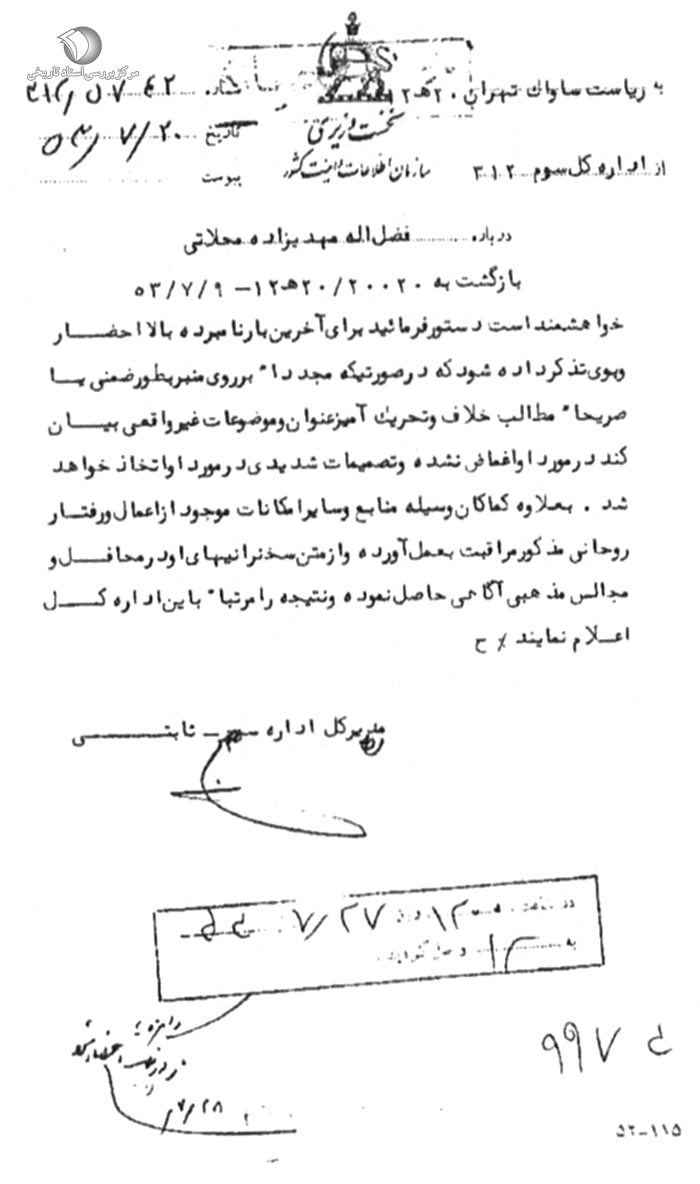 مرکز بررسی اسناد تاریخی
به ریاست ساواک تهران ۲۰ هـ ۱۲ شماره ۳۱۲/۵۷۴۲
نخست وزیری
تاریخ ۵۳/۷/۲۰
از اداره کل سوم ۳۱۲ سازمان اطلاعات و امنیت کشور پیوست
درباره فضل اله مهدیزاده محلاتی
بازگشت به ۲۰۰۲۰/۲۰هـ۱۲ – ۵۳/۷/۹
خواهشمند است دستور فرمائید برای آخرین بار نامبرده بالا احضار
وبوی تذکر داده شود که در صورتیکه مجددا" برروی منبر بطور ضمنی یا
صریحا" مطالب خلاف وتحریک آمیز عنوان وموضوعات غیرواقعی بیان
کند در مورد او اغماض نشده وتصمیمات شدیدی در مورد او اتخاذ خواهد
شد . بعلاوه کماکان وسیله منابع وسایر امکانات موجود از اعمال ورفتار
روحانی مذکور مراقبت بعمل آورده و از متن سخنرانیهای او در محافل و
مجالس مذهبی آگاهی حاصل نموده ونتیجه را مرتبا" باین اداره کل
اعلام نمایند ٪ ح
مدیرکل اداره سوم – ثابتی
در ساعت ۱۲ روز ۷/۲۷
به ۱۲ واصل گردید .
۷/۲۸
۹۹۷
۵۲-۱۱۵